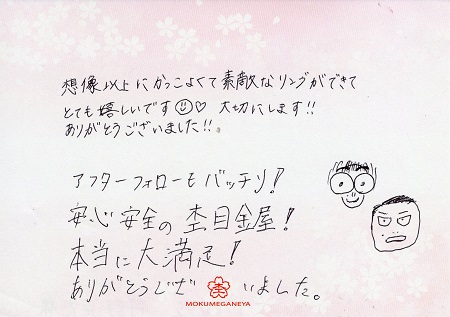 想像以上にかっこよくて素敵なリングができて
とても嬉しいです☺♡ 大切にします!!
ありがとうございました!!
アフターフォローもバッチリ!
安心安全の杢目金屋!
本当に大満足!
ありがとうございました。
杢
MOKUMEGANEYA